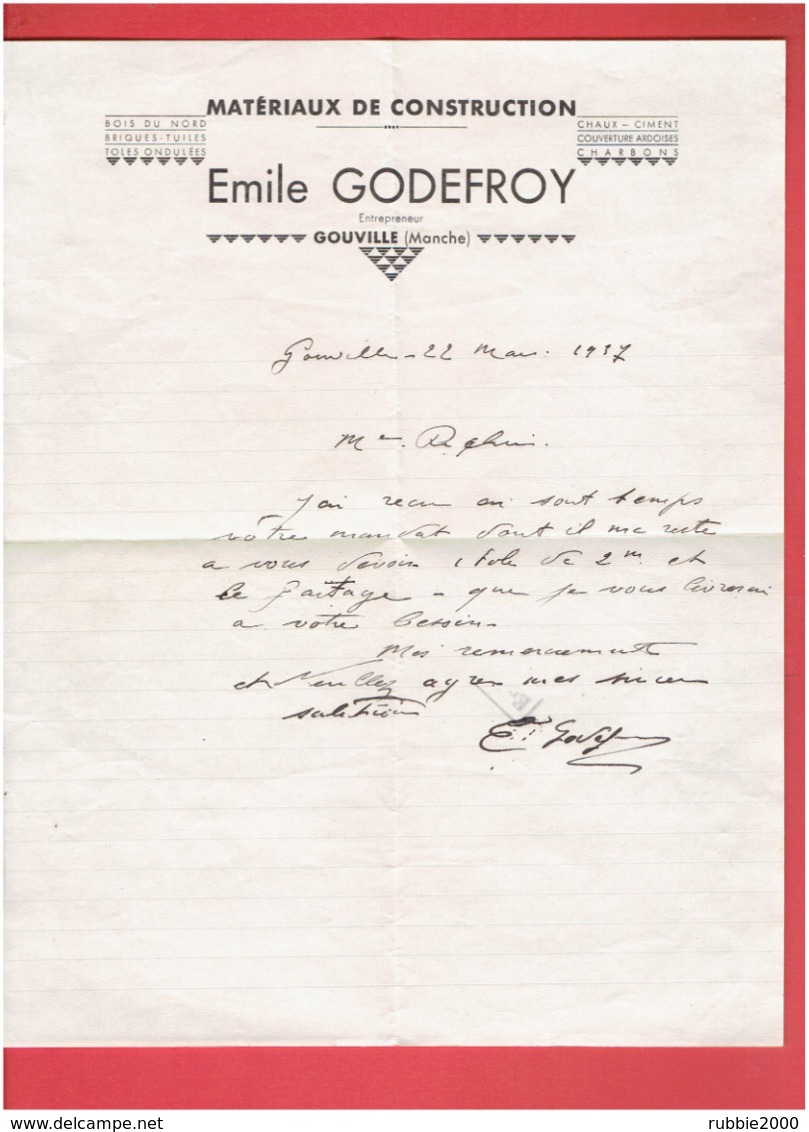 MATÉRIAUX DE CONSTRUCTION
BOIS DU NORD
BRIQUES-TUILES
TOLES ONDULÉES
CHAUX – CIMENT
COUVERTURE ARDOISES
CHARBONS
Emile GODEFROY
Entrepreneur
GOUVILLE (Manche)
Gouville - 22 Mars. 1937
M
J'ai recu en sont temps
vôtre mandat dont il me reste
a vous devoir 1 tole de 2 m. et
le faitage - que je vous livrerai
a vôtre besoin -
Mes remerciements
et Veuillez agréer mes sincères
salutations
E. Godefroy
rubbie2000